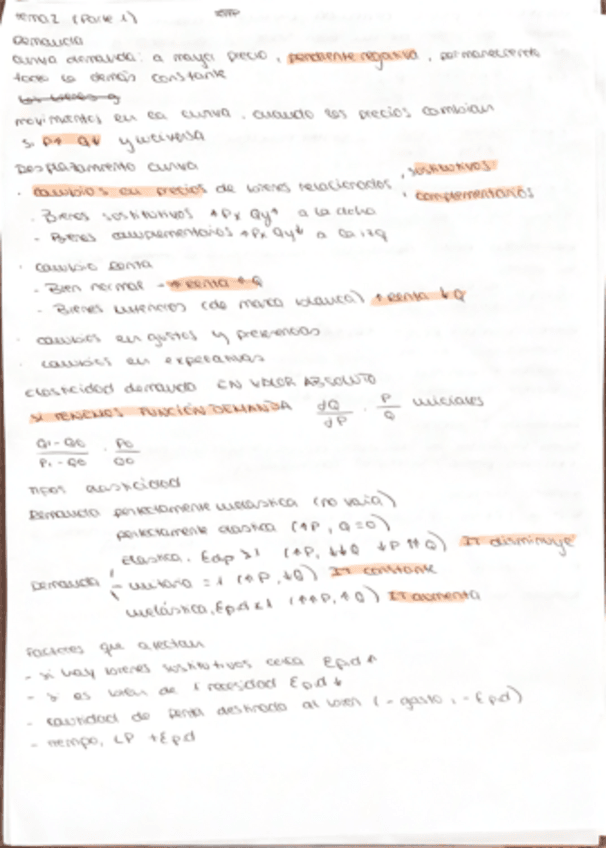 Tema 2 (Parte 1)
Demanda
curva demanda: a mayor precio, pendiente negativa, permaneciendo
todo lo demás constante
los bienes q
movimientos en la curva. cuando los precios cambian
si P↑ Q↓ y viceversa
Desplazamiento curva
· cambios en precios de bienes relacionados, sustitutivos
, complementarios
- Bienes sustitutivos ↑Px Qy↑ a la dcha
- Bienes complementarios ↑Px Qy↓ a la izq
· cambio renta
- Bien normal → renta ↑Q
- Bienes inferiores (de marca blanca) ↑renta ↓Q
· cambios en gustos y preferencias
· cambios en expectativas
Elasticidad demanda EN VALOR ABSOLUTO
SI TENEMOS FUNCIÓN DEMANDA dQ/dP · P/Q iniciales
Q1-Q0/P1-Q0 · P0/Q0
Tipos elasticidad
Demanda perfectamente inelástica (no varía)
perfectamente elástica (↑P, Q=0)
elástica. Edp>1 (↑P, ↓↓Q ↓P ↑↑Q) IT disminuye
Demanda unitaria = 1 (↑P, ↓Q) IT constante
inelástica, Epd<1 (↑↑P, ↑Q) IT aumenta
Factores que afectan
- si hay bienes sustitutivos cerca Epd↑
- si es bien de 1 necesidad Epd↓
- cantidad de renta destinada al bien (-gasto, -Epd)
- tiempo, LP +Epd